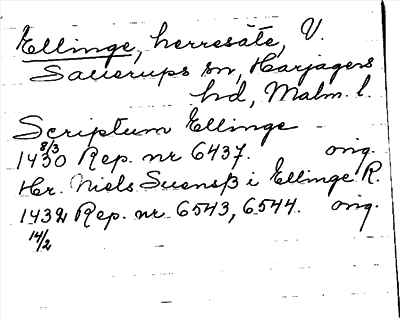 Ellinge, herresäte, V.
Sallerups sn, Harjagers
hd, Malm. l.
Scriptum Ellinge
1430 8/3 Rep. nr 6437. orig.
Hr. Niels Suenss i Ellinge R.
1432 Rep. nr 6543, 6544. orig.
14/2